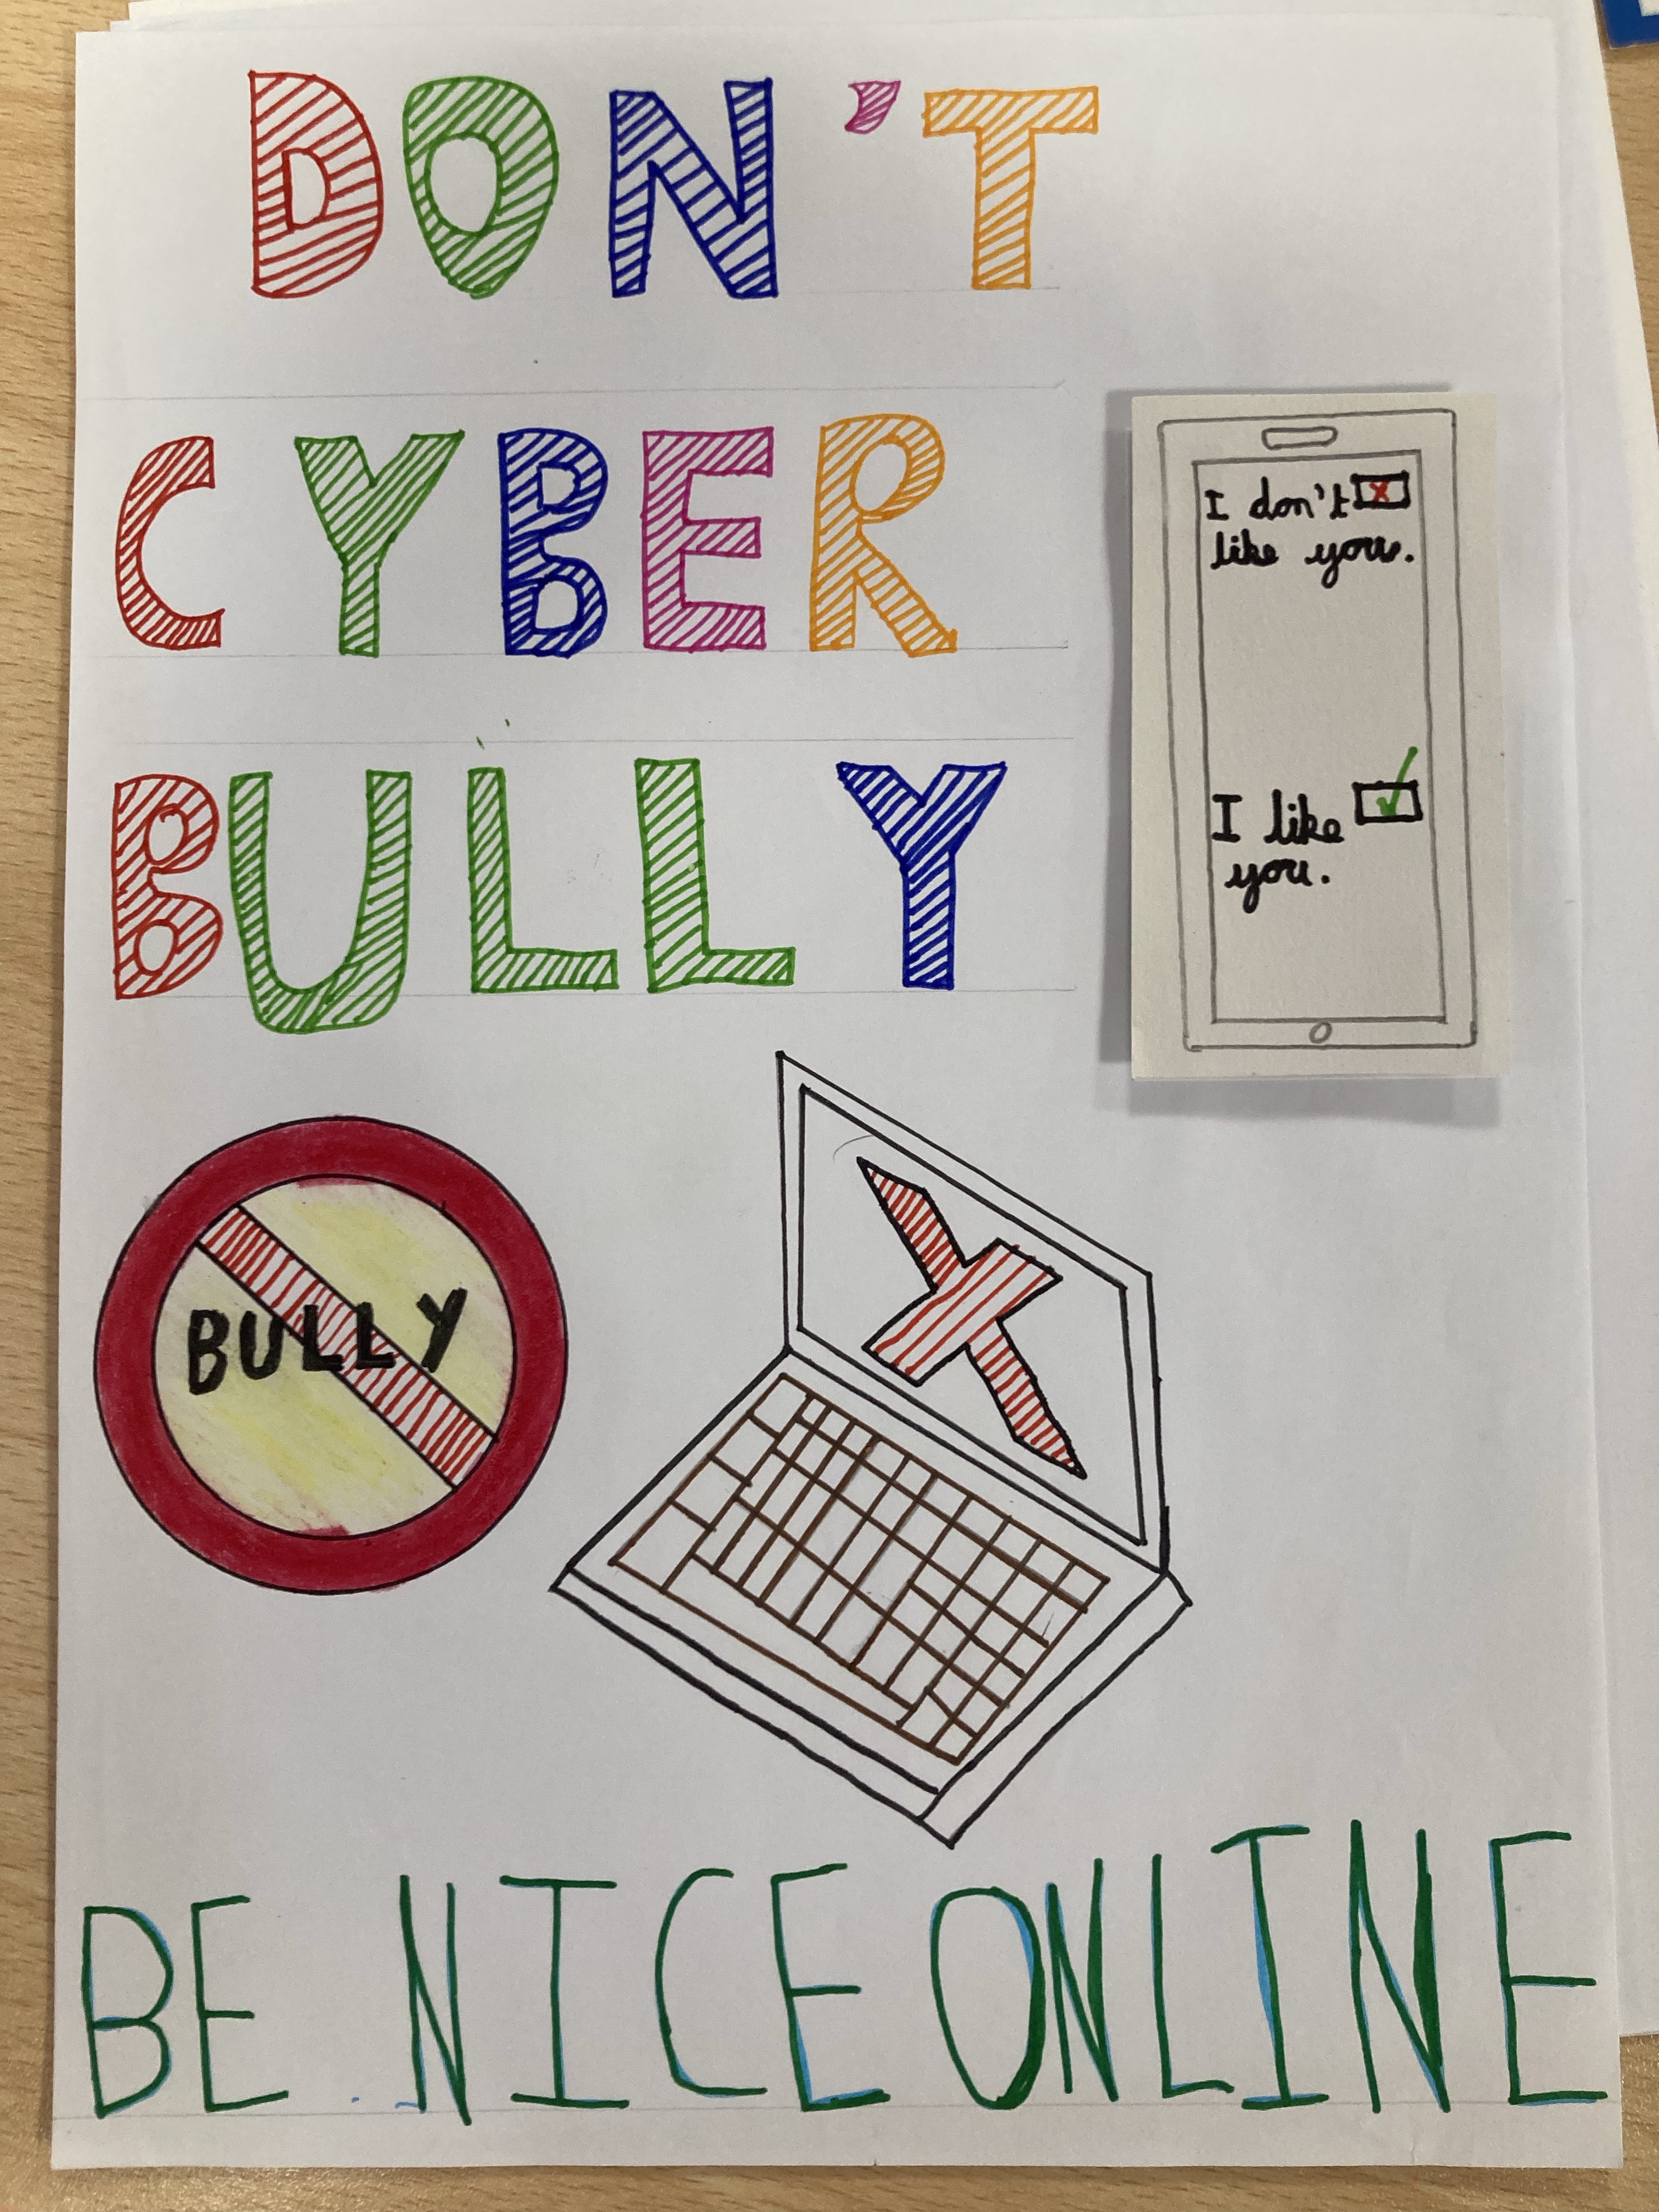 DON'T
CYBER
BULLY
I don't
like you.
I like
you.
BULLY
BE NICE ONLINE